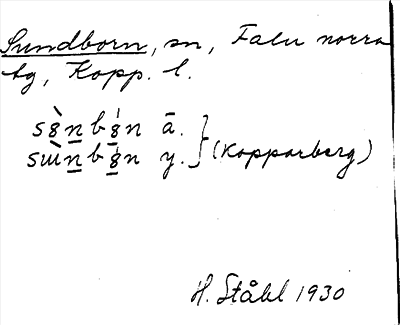 Sundborn, sn, Falu norra
tg, Kopp. l.
s8̀nb8́n ā.
sɯ̀nb8́n y. } (Kopparberg)
H. Ståhl 1930